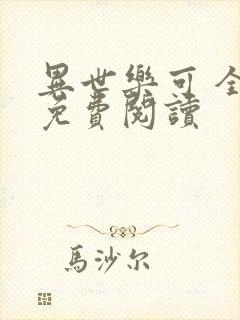 異世樂可 全
免費閱讀
馬沙尔